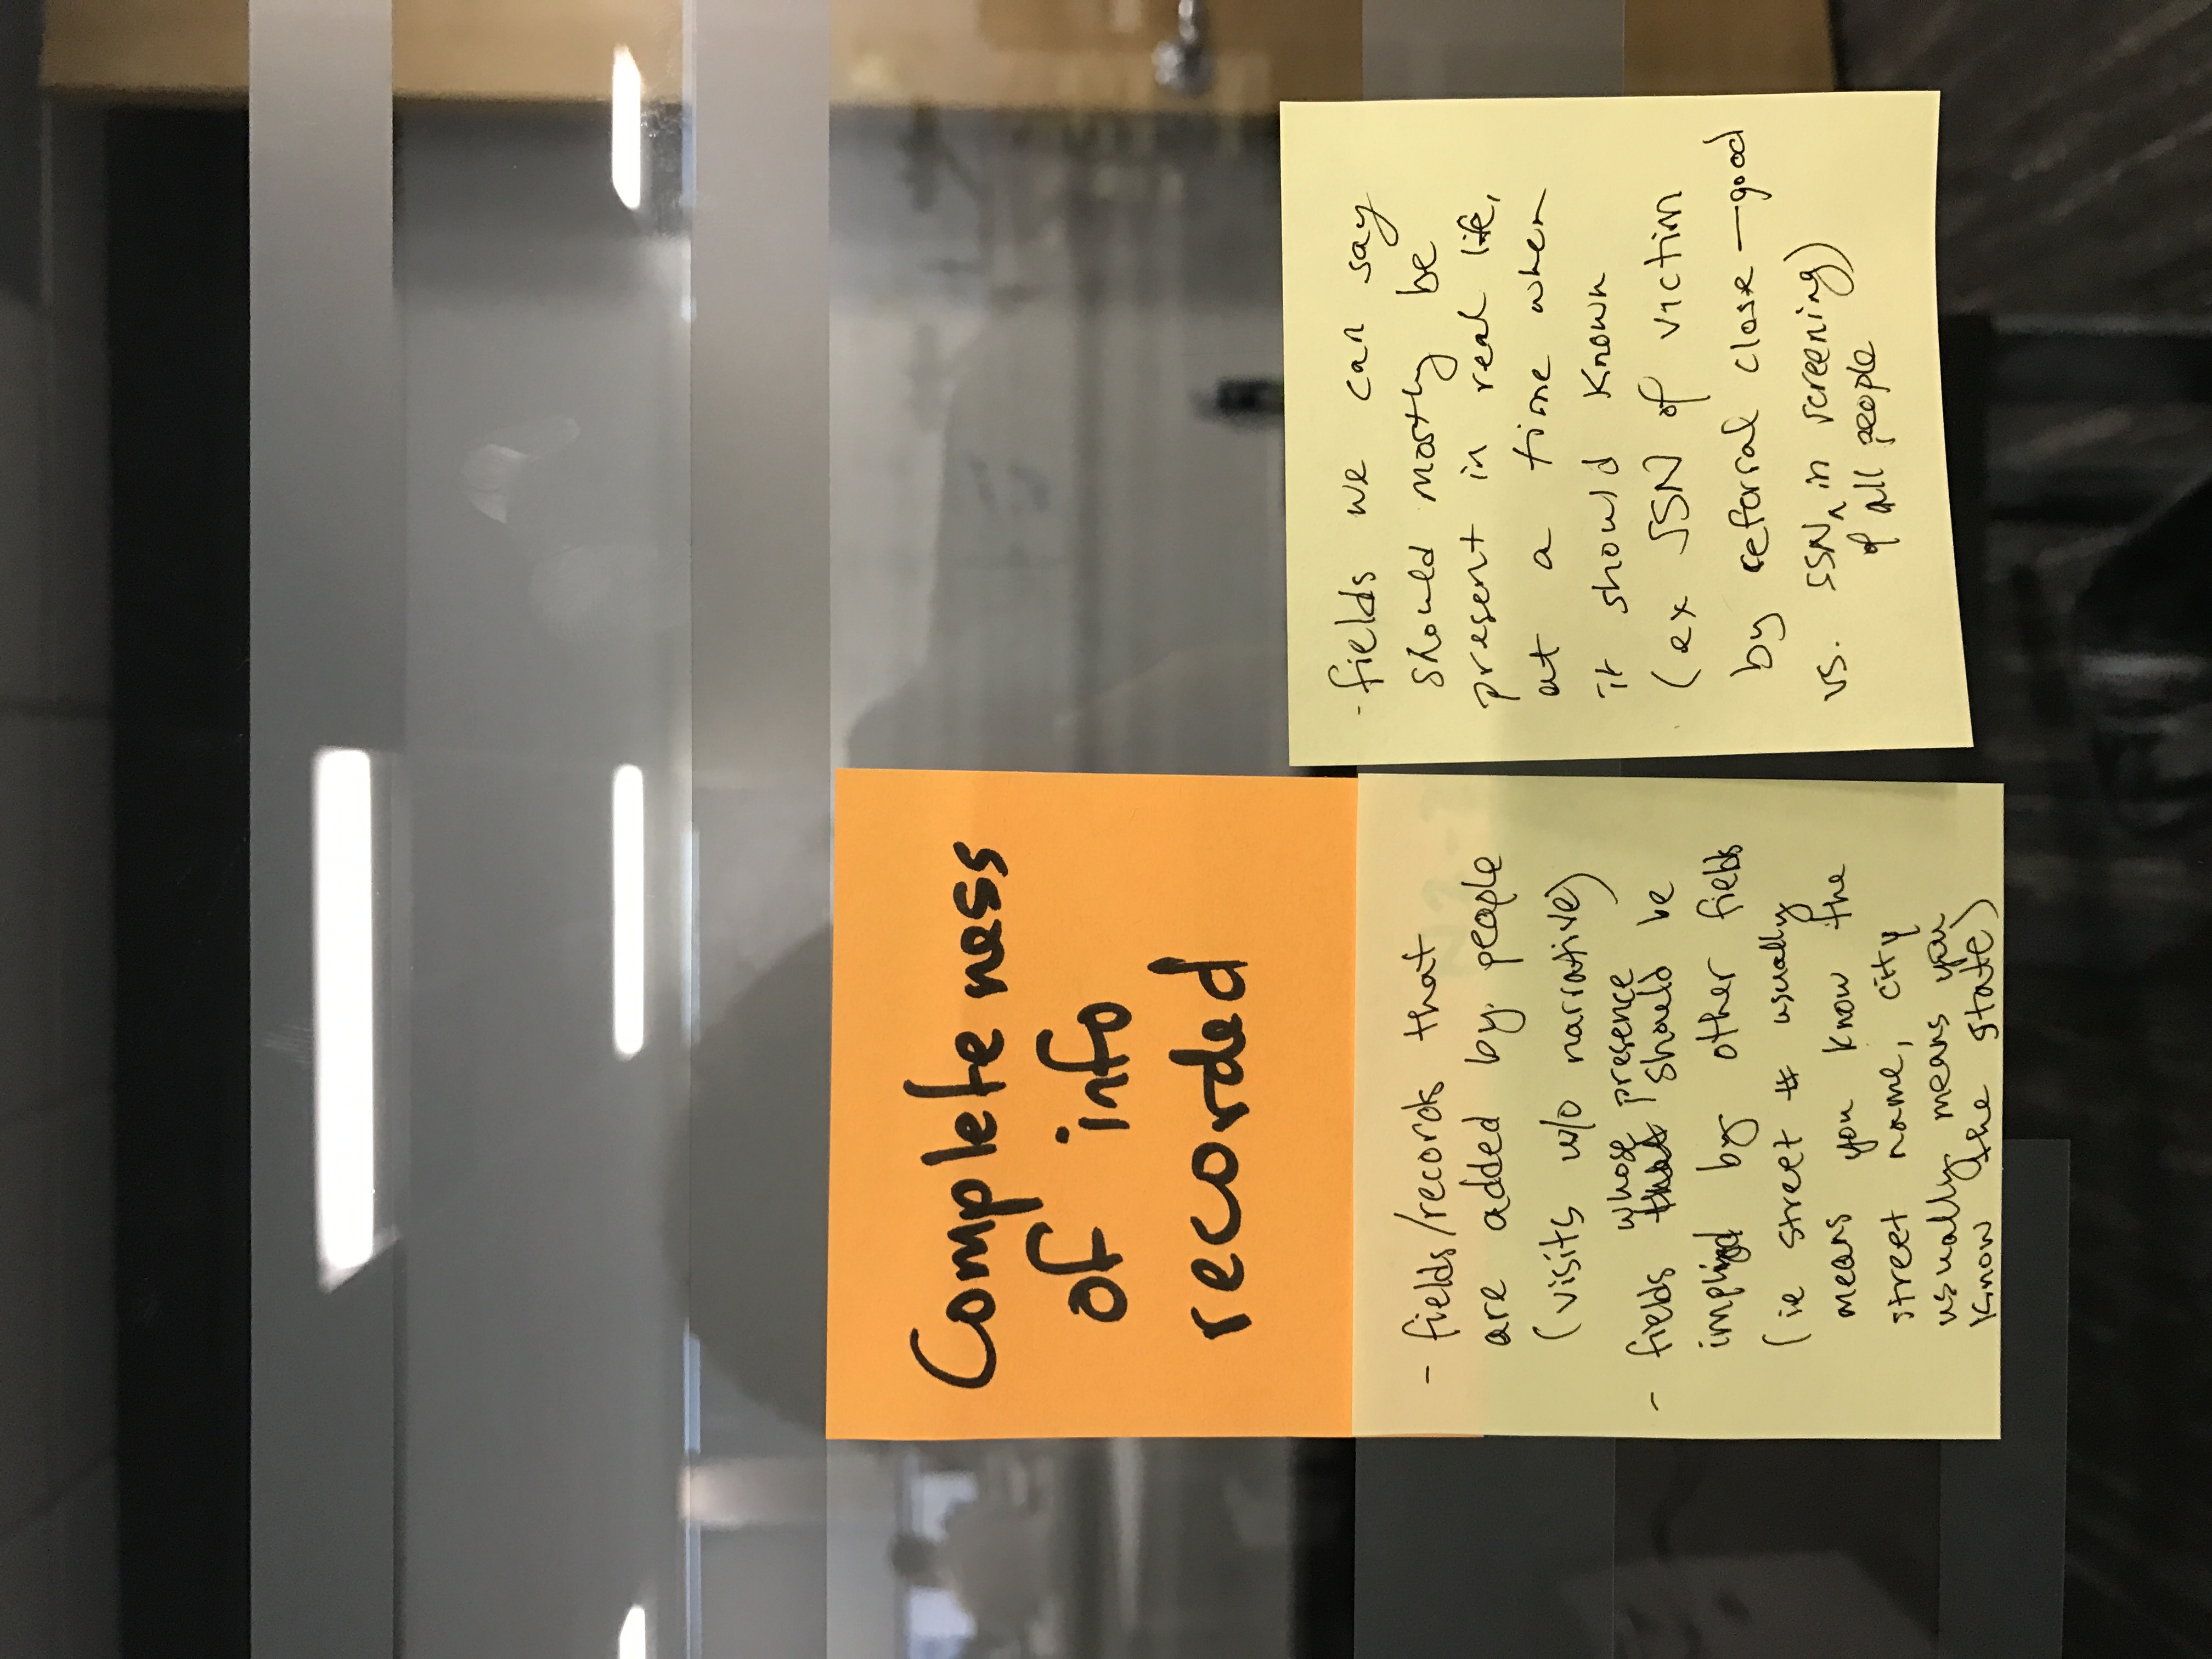 Completeness
of info
recorded
- fields/records that
are added by people
(visits w/o narrative)
whose presence
- fields that should be
implied by other fields
(ie street # usually
means you know the
street name, city
usually means you
know the state)
- fields we can say
should mostly be
present in real life,
at a time when
it should known
(ex SSN of victim
by referral close — good
vs. SSN ^ in screening)
of all people